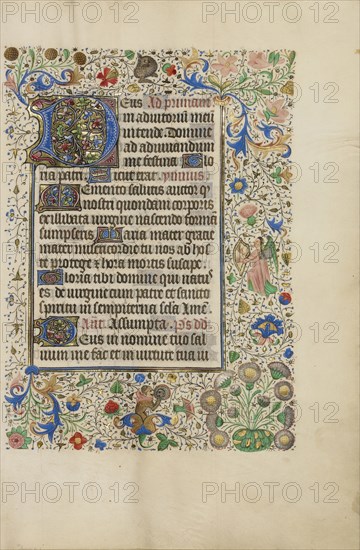 PHOTO 12 PHOTO 12 PHOTO 12
Eus Ad primam
in adiutoriū meū
intende. Domine
ad adiuuandum
me festina. Glo
ria patri. Sicut erat. Ymnus.
Memento salutis auctor q
nostri quondam corporis
ex illibata uirgine nascendo formā
sumpseris. Maria mater gracie
mater misericordie tu nos ab hoste
protege & hora mortis suscipe.
Gloria tibi domine qui natus
es de uirgine cum patre et sancto
spiritu in sempiterna secla. Amē.
Ant. Assumpta. Ps. dd
Deus in nomine tuo sal
uum me fac et in uirtute tua iu